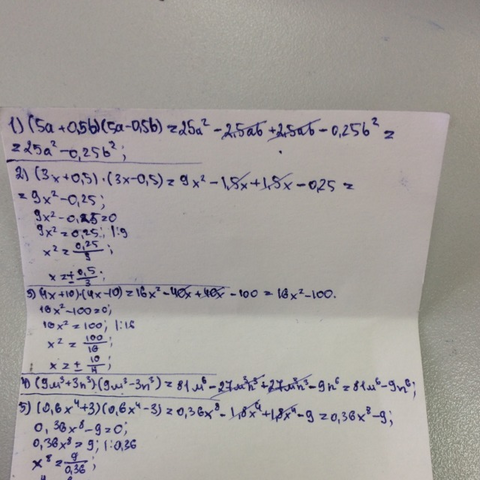 1) (5a+0,5b)(5a-0,5b)=25a²-2,5ab+2,5ab-0,25b²=
=25a²-0,25b²;
2) (3x+0,5)·(3x-0,5)=9x²-1,5x+1,5x-0,25=
=9x²-0,25;
9x²-0,25=0
9x²=0,25; |:9
x²=0,25/9;
x=±0,5/3;
3) (4x+10)·(4x-10)=16x²-40x+40x-100=16x²-100.
16x²-100=0;
16x²=100; |:16
x²=100/16;
x=±10/4;
4) (9m³+3n³)·(9m³-3n³)=81m⁶-27m³n³+27m³n³-9n⁶=81m⁶-9n⁶;
5) (0,6x⁴+3)(0,6x⁴-3)=0,36x⁸-1,8x⁴+1,8x⁴-9=0,36x⁸-9;
0,36x⁸-9=0;
0,36x⁸=9; |:0,36
x⁸=9/0,36;